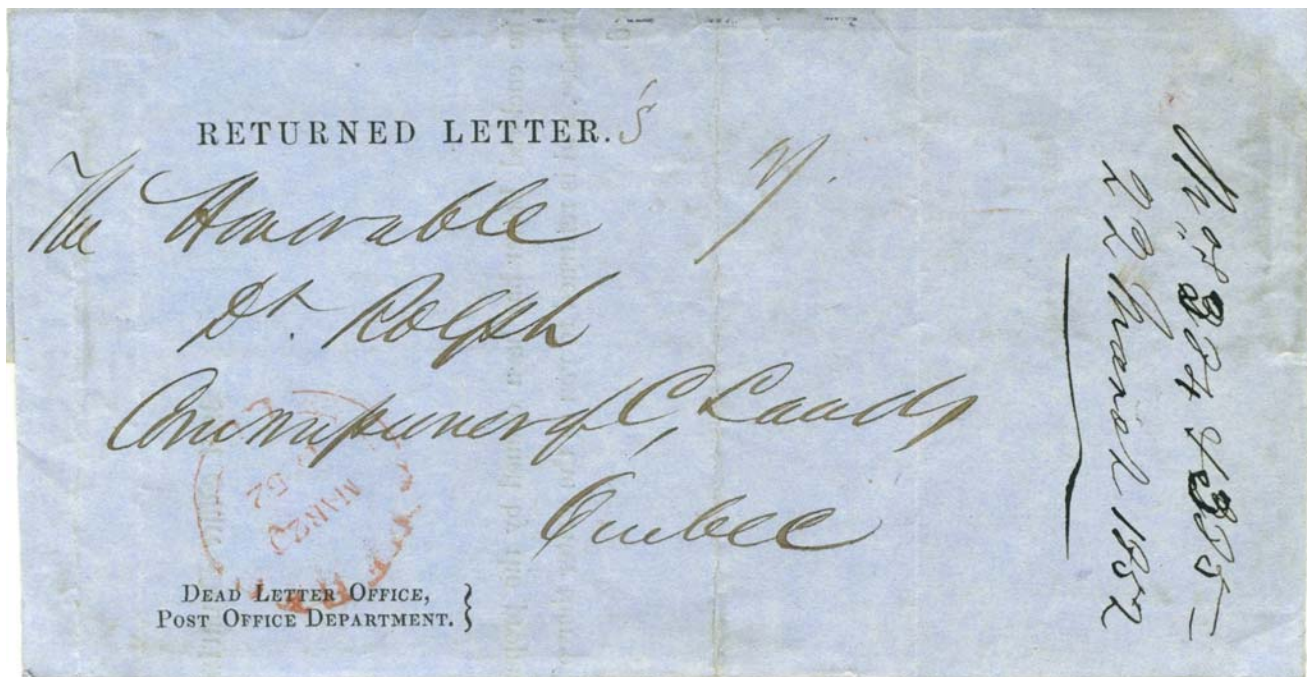 RETURNED LETTER.'s
The Honorable
Dr. Rolph
Commissioner of C. Lands
Quebec
MAR 2
52
DEAD LETTER OFFICE,
POST OFFICE DEPARTMENT.
22 March 1852